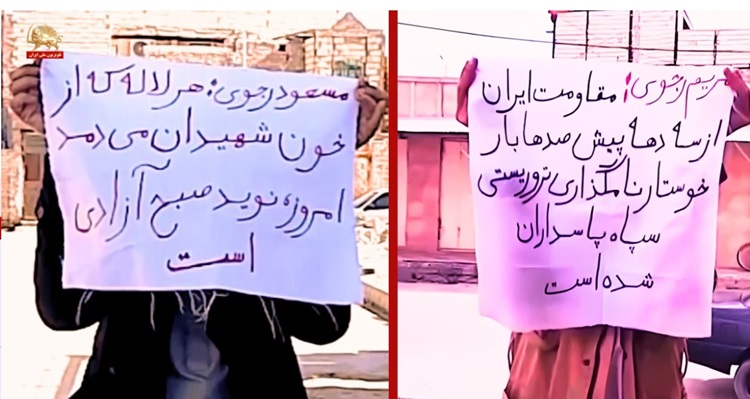 تلویزیون ملی ایران
مسعود رجوی: هر لاله که از
خون شهیدان می دمد
امروزه نوید صبح آزادی
است
مریم رجوی: مقاومت ایران
از سه دهه پیش صدها بار
خوستار نامگذاری تروریستی
سپاه پاسداران
شده است